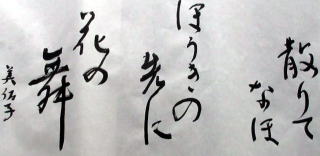 散りて
なほ
ほうきの
先に
花の
舞
美佑子